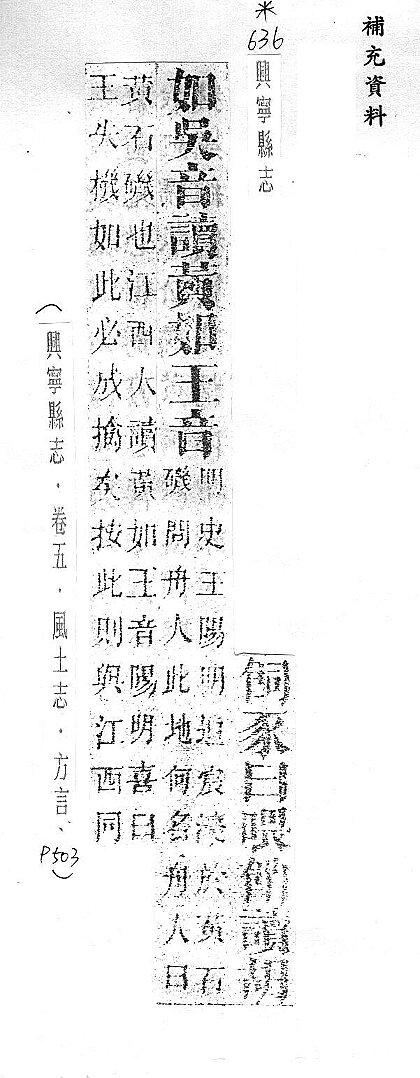 補充資料
*
636
興寧縣志
飼豕曰喂讀胡
如吳音讀黃如王音
明史王陽明追宸濠於黃石
磯問舟人此地何名舟人曰
黃石磯也江西人讀黃如王音陽明喜曰
王失機如此必成擒矣按此則與江西同
(興寧縣志．卷五．風土志．方言、P503)